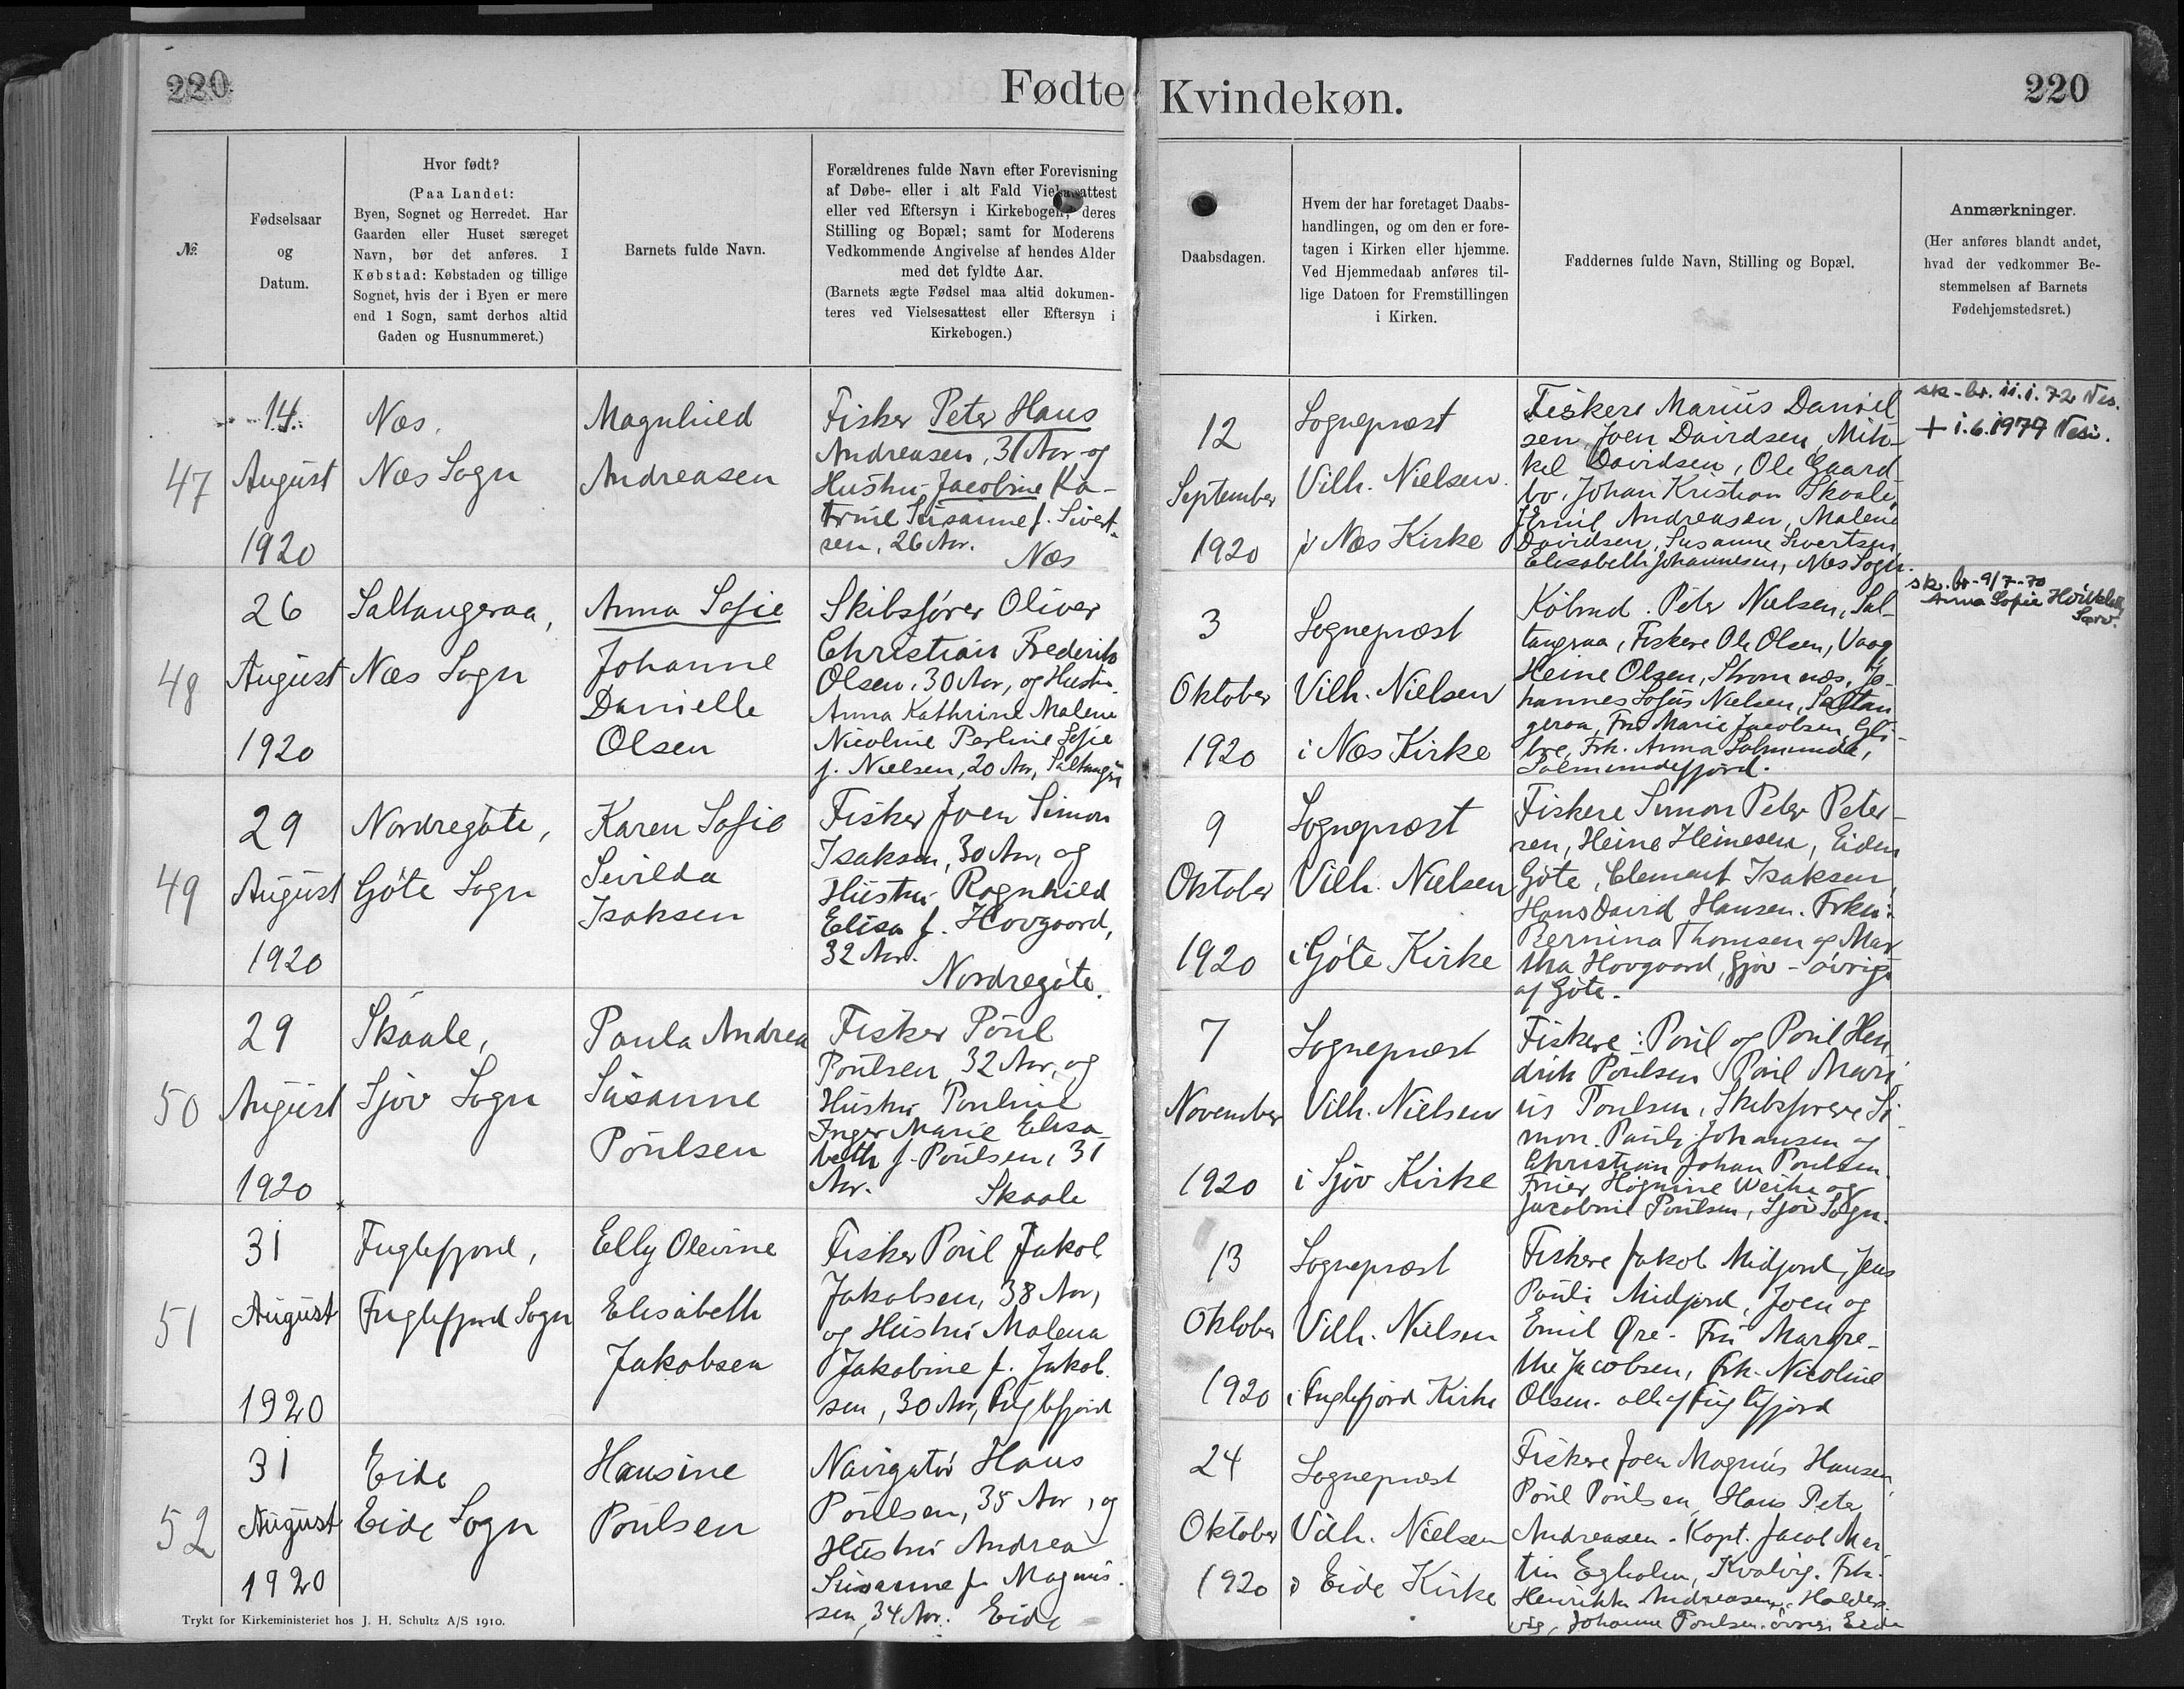 220
Fødte
Kvindekøn.
220
№
Fødselsaar
og
Datum.
Hvor født?
(Paa Landet:
Byen, Sognet og Herredet. Har
Gaarden eller Huset særeget
Navn, bør det anføres. I
Købstad: Købstaden og tillige
Sognet, hvis der i Byen er mere
end 1 Sogn, samt derhos altid
Gaden og Husnummeret.)
Barnets fulde Navn.
Forældrenes fulde Navn efter Forevisning
af Døbe- eller i alt Fald Vielsesattest
eller ved Eftersyn i Kirkebogen, deres
Stilling og Bopæl; samt for Moderens
Vedkommende Angivelse af hendes Alder
med det fyldte Aar.
(Barnets ægte Fødsel maa altid dokumen-
teres ved Vielsesattest eller Eftersyn i
Kirkebogen.)
Daabsdagen.
Hvem der har foretaget Daabs-
handlingen, og om den er fore-
tagen i Kirken eller hjemme.
Ved Hjemmedaab anføres til-
lige Datoen for Fremstillingen
i Kirken.
Faddernes fulde Navn, Stilling og Bopæl.
Anmærkninger.
(Her anføres blandt andet,
hvad der vedkommer Be-
stemmelsen af Barnets
Fødehjemstedsret.)
47
14.
August
1920
Næs.
Næs Sogn
Magnhild
Andreasen
Fisker Peter Hans
Andreasen, 31 Aar og
Hustru Jacobine Ka-
trine Susanne f. Sivert-
sen, 26 Aar.
Næs
12
September
1920
Sognepræst
Vilh. Nielsen.
i Næs Kirke
Fiskere Marius Daniel
sen, Joen Davidsen, Mik-
kel Davidsen, Ole Gaard
bo, Johan Kristian Skaale,
Emil Andreasen, Malene
Davidsen, Susanne Sivertsen
Elisabeth Johannesen, Næs Sogn.
sk-br. 11.1.72 Nes.
+ 1.6.1979 Nesi.
48
26
August
1920
Saltangeraa,
Næs Sogn
Anna Sofie
Johanne
Danielle
Olsen
Skibsfører Oliver
Christian Frederik
Olsen, 30 Aar, og Hustru
Anna Kathrine Malene
Nicoline Perline Sofie
f. Nielsen, 20 Aar,
3
Oktober
1920
Sognepræst
Vilh. Nielsen
i Næs Kirke
Købmd. Peter Nielsen, Sal-
tangraa, Fiskere Ole Olsen, Vaag
Heine Olsen, Strømnæs, Jo-
hannes Sofus Nielsen, Saltan
geraa, Fru Marie Jacobsen, Gli-
bre, Frk. Anna
sk. br-9/7-70
Anna Sofie
49
29
August
1920
Nordregøte,
Gøte Sogn
Karen Sofie
Sevilda
Isaksen
Fisker Joen Simon
Isaksen, 30 Aar, og
Hustru Ragnhild
Elisa f. Hovgaard,
32 Aar.
Nordregøte.
9
Oktober
1920
Sognepræst
Vilh. Nielsen
i Gøte Kirke
Fiskere Simon Peter Peter-
sen, Heine Heinesen, Eiden
Gøte, Clement Isaksen,
Hans David Hansen. Frkn:
Bernina Thomsen og Mar
tha Hovgaard, Gjov - øvrige
af Gøte.
50
29
August
1920
Skaale,
Sjov Sogn
Paula Andrea
Susanne
Poulsen
Fisker Poul
Poulsen, 32 Aar, og
Hustru Pouline
Inger Marie Elisa-
beth f. Poulsen, 31
Aar.
Skaale
7
November
1920
Sognepræst
Vilh. Nielsen
i Sjov Kirke
Fiskere: Poul og Poul Hen
drik Poulsen, Poul Mari
us Poulsen, Skibsførere Si
mon Pauli Johansen og
Christian Johan Poulsen
Fruer Høgnine Weihe og
Jacobine Poulsen, Sjov Sogn.
51
31
August
1920
Fuglefjord,
Fuglefjord Sogn
Elly Olevine
Elisabeth
Jakobsen
Fisker Poul Jakob
Jakobsen, 38 Aar,
og Hustru Malena
Jakobine f. Jakob
sen, 30 Aar, Fuglefjord
13
Oktober
1920
Sognepræst
Vilh. Nielsen
i Fuglefjord Kirke
Fiskere Jakob Midjord, Jens
Pauli Midjord, Joen og
Emil Øre. Fru Margre-
the Jacobsen, Frk. Nicoline
Olsen. alle af Fuglefjord
52
31
August
1920
Eide
Eide Sogn
Hansine
Poulsen
Navigatør Hans
Poulsen, 35 Aar, og
Hustru Andrea
Susanne f. Magnus-
sen, 34 Aar. Eide
24
Oktober
1920
Sognepræst
Vilh. Nielsen
i Eide Kirke
Fiskere Joen Magnus Hansen,
Poul Poulsen, Hans Peter
Andreasen. Kapt. Jacob Mar-
tin Egholm, Kvalvig. Frk.
Henrikka Andreasen, Halders
vig, Johanne Poulsen. øvrige Eide
Trykt for Kirkeministeriet hos J. H. Schultz A/S 1910.